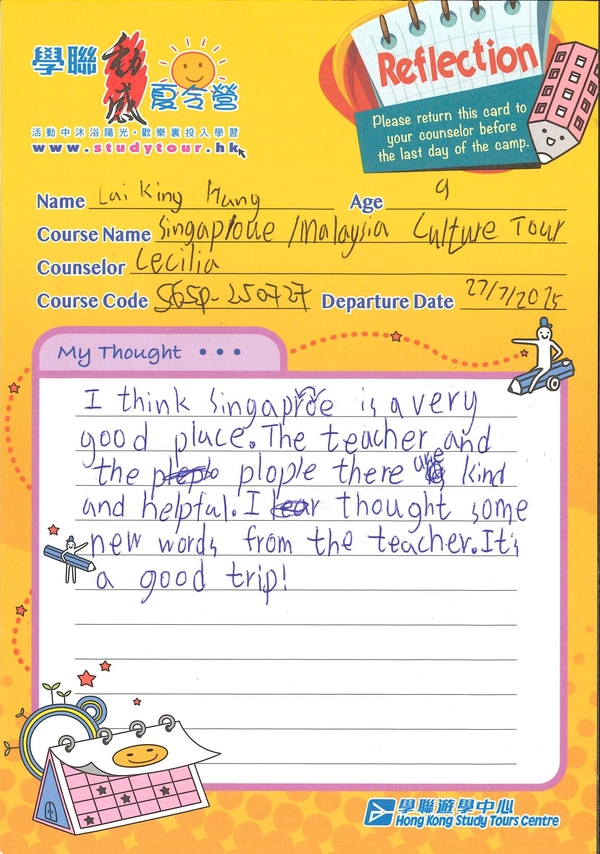 學聯 動感 夏令營
活動中沐浴陽光・歡樂裏投入學習
www.studytour.hk
Reflection
Please return this card to
your counselor before
the last day of the camp.
Name Lai King Hung Age 9
Course Name Singaplode /Malaysia Culture Tour
Counselor Cecilia
Course Code SGSP-250727 Departure Date 27/7/2025
My Thought • • •
I think Singaproe is a very
good place. The teacher and
the plople there are kind
and helpful. I thought some
new words from the teacher. It's
a good trip!
學聯遊學中心
Hong Kong Study Tours Centre